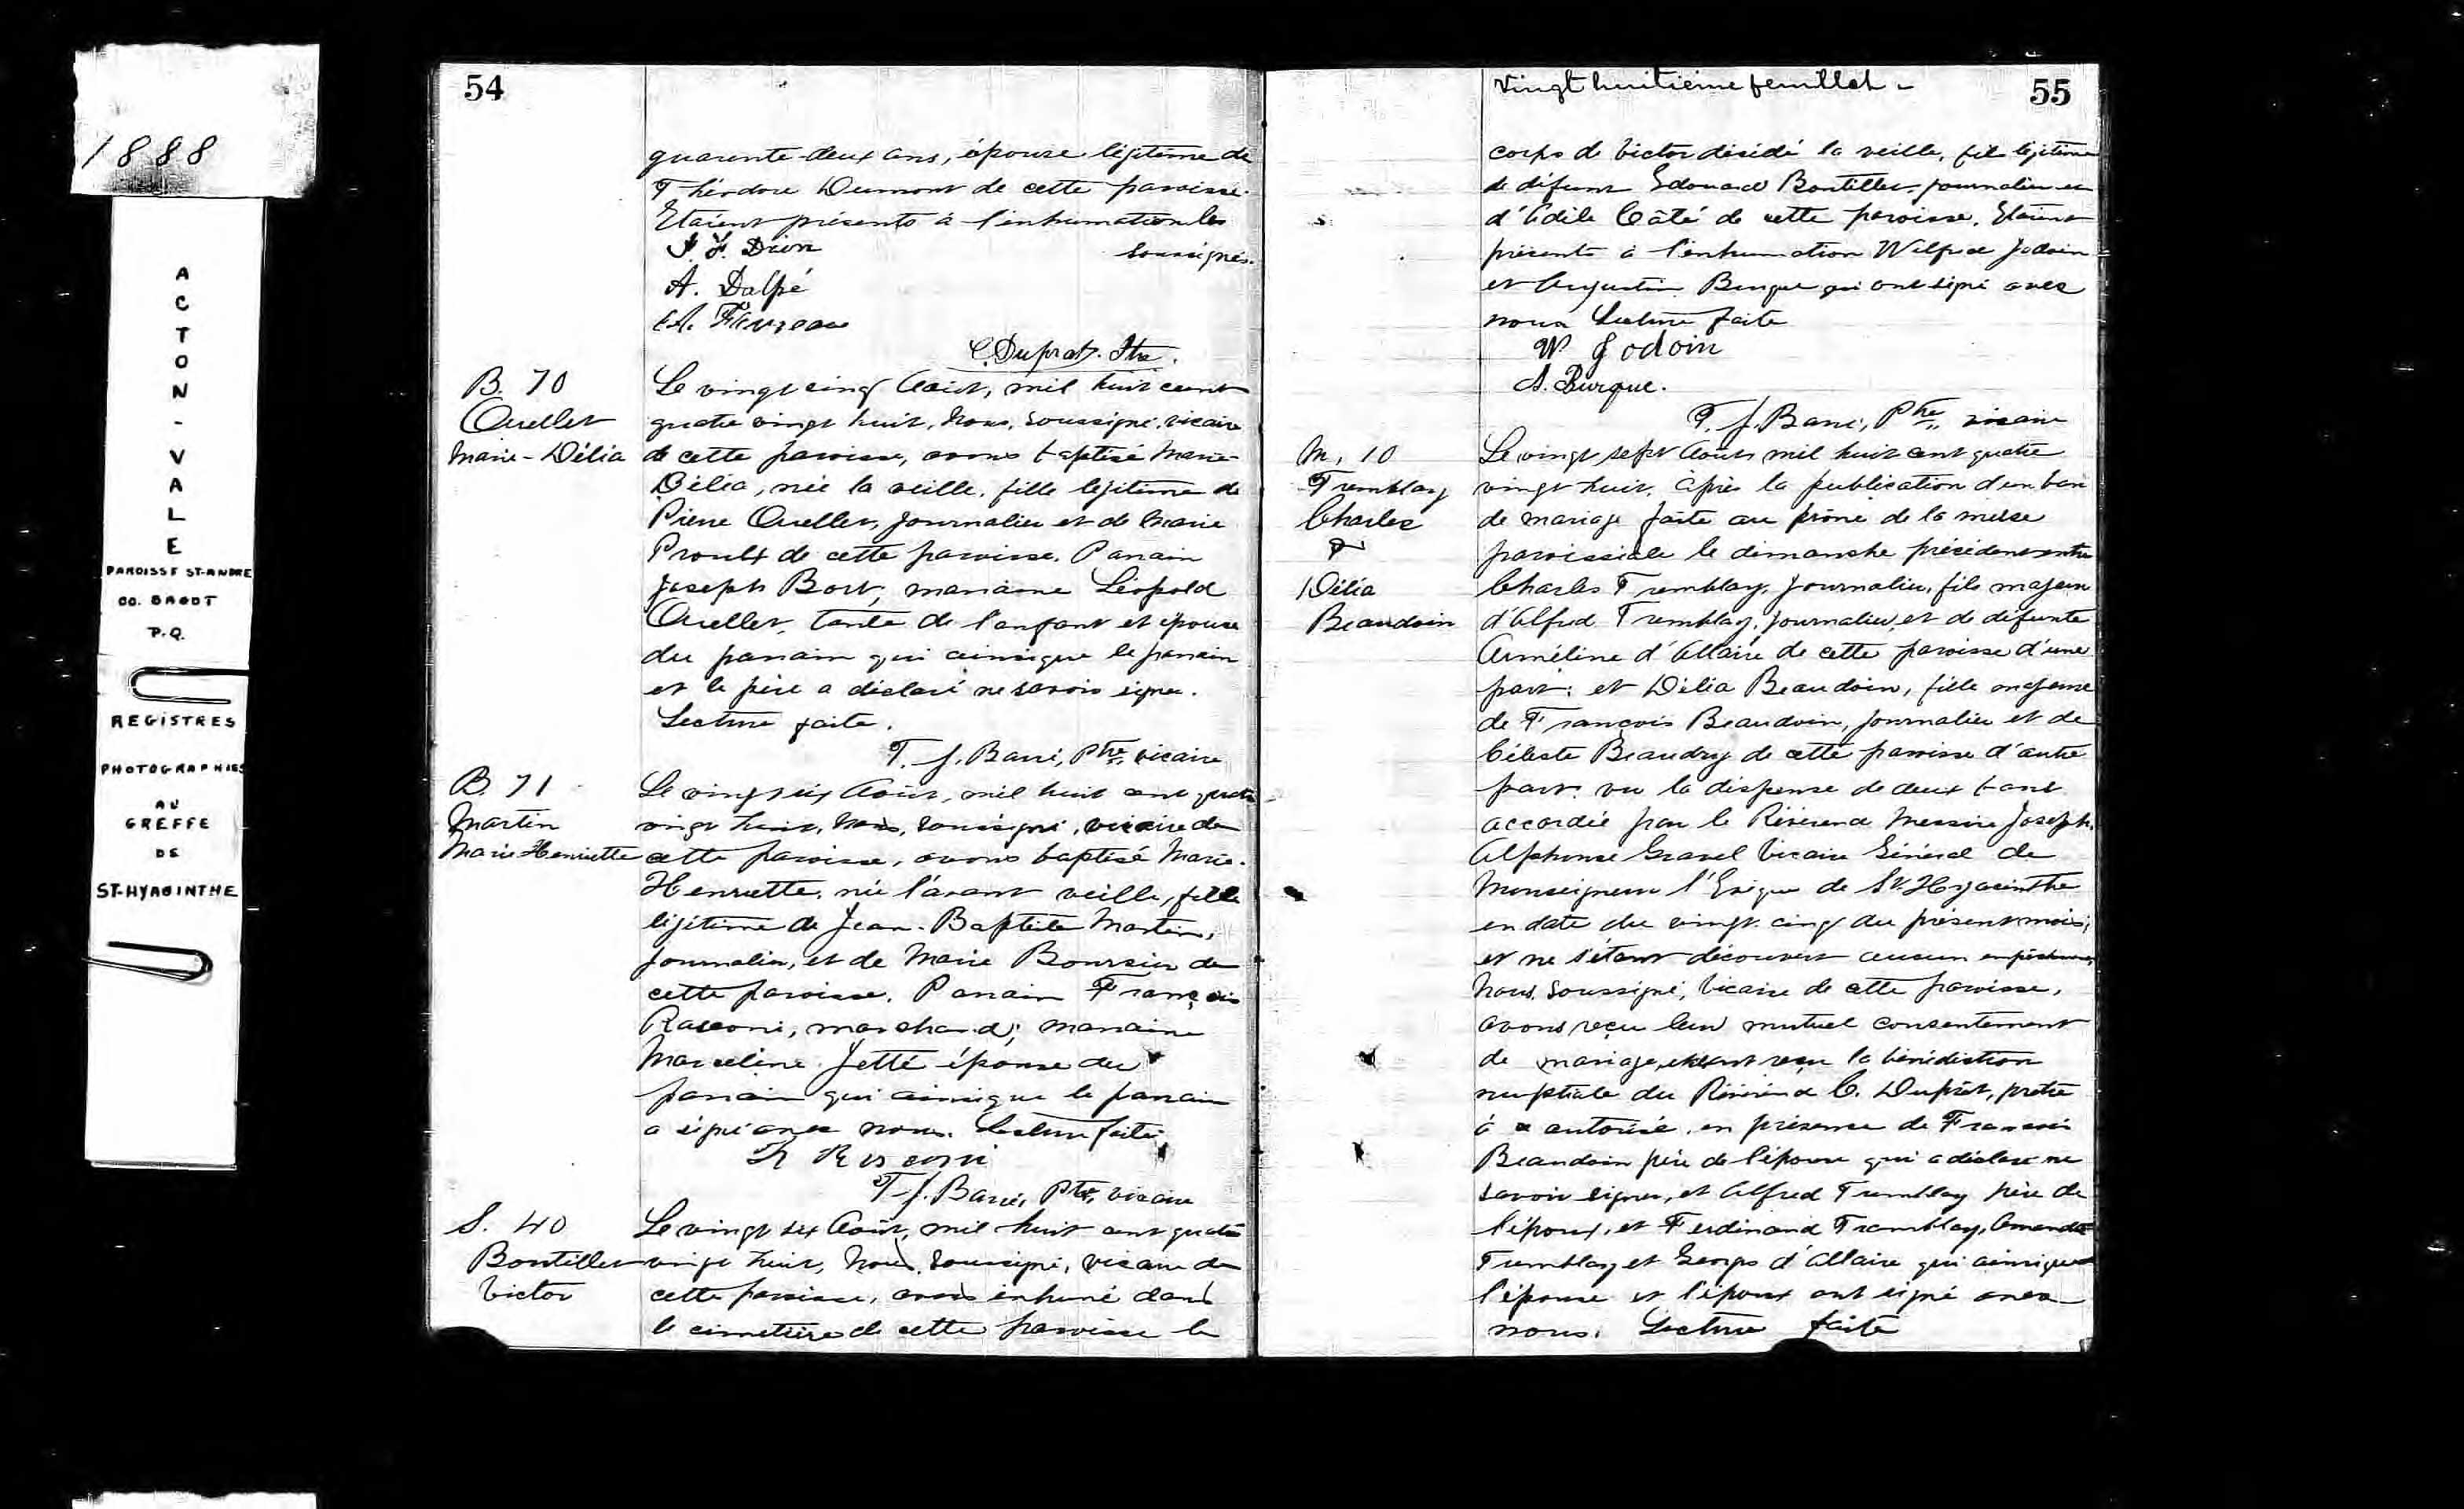 1888
ACTON-VALE
PAROISSE ST-ANDRE
CO. BAGOT
P.Q.
REGISTRES
PHOTOGRAPHIES
AU
GREFFE
DE
ST-HYACINTHE
54
quarente-deux ans, épouse légitime de
Théodore Dumont de cette paroisse.
Etaient présents à l'inhumation les
soussignés.
J. F. Dion
A. Dalpé
A. Fauzeau
C. Duprat. Ptre.
B. 70
Ouellet
Marie-Délia
Le vingt cinq Août, mil huit cent
quatre vingt huit, Nous, soussigné, vicaire
de cette paroisse, avons baptisé Marie-
Délia, née la veille, fille légitime de
Pierre Ouellet, journalier et de Marie
Proulx de cette paroisse. Parrain
Joseph Bort, marraine Léopold
Ouellet, tante de l'enfant et épouse
du parrain qui ainsique le parrain
et le père a déclaré ne savoir signer.
Lecture faite.
T. J. Barré, Ptre, vicaire
B. 71
Martin
Marie Henriette
Le vingt six Août, mil huit cent quatre
vingt huit, Nous, soussigné, vicaire de
cette paroisse, avons baptisé Marie-
Henriette, née l'avant veille, fille
légitime de Jean-Baptiste Martin,
journalier, et de Marie Boursier de
cette paroisse. Parrain François
Rasconi, marchand; marraine
Marceline Jetté épouse du
parrain qui ainsique le parrain
a signé avec nous. Lecture faite,
T. J. Barré, Ptre, vicaire
S. 40
Boutiller
Victor
Le vingt six Août, mil huit cent quatre
vingt huit, Nous, soussigné, vicaire de
cette paroisse, avons inhumé dans
le cimetière de cette paroisse le
vingt huitième feuillet -
55
corps de Victor décédé la veille, fils légitime
de défunt Edouard Boutiller journalier et
d'Adile Côté de cette paroisse. Etaient
présents à l'inhumation Wilfred Jodoin
et Augustin Burque qui ont signé avec
nous Lecture faite
W Jodoin
A. Burque.
T. J. Barré, Ptre, vicaire
M. 10
Tremblay
Charles
&
Délia
Beaudoin
Le vingt sept Août mil huit cent quatre
vingt huit, Après la publication d'un ban
de mariage faite au prône de la messe
paroissiale le dimanche précédent entre
Charles Tremblay, journalier, fils majeur
d'Alfred Tremblay, journalier, et de défunte
Arméline d'Allaire de cette paroisse d'une
part; et Délia Beaudoin, fille majeure
de François Beaudoin, journalier et de
Céleste Beaudry de cette paroisse d'autre
part. vu la dispense de deux bans
accordée par le Révérend Messire Joseph
Alphonse Gravel Vicaire Général de
Monseigneur l'Evêque de St. Hyacinthe
en date du vingt-cinq du présent mois;
et ne s'étant découvert aucun empêchement,
Nous, soussigné, Vicaire de cette paroisse,
avons reçu leur mutuel consentement
de mariage, et ont reçu la bénédiction
nuptiale du Révérend C. Duprat, prêtre
à autorisé, en présence de François
Beaudoin père de l'épouse qui a déclaré ne
savoir signer, et Alfred Tremblay père de
l'époux, et Ferdinand Tremblay,
Tremblay et Georges d'Allaire qui ainsique
l'épouse et l'époux ont signé avec
nous. Lecture faite